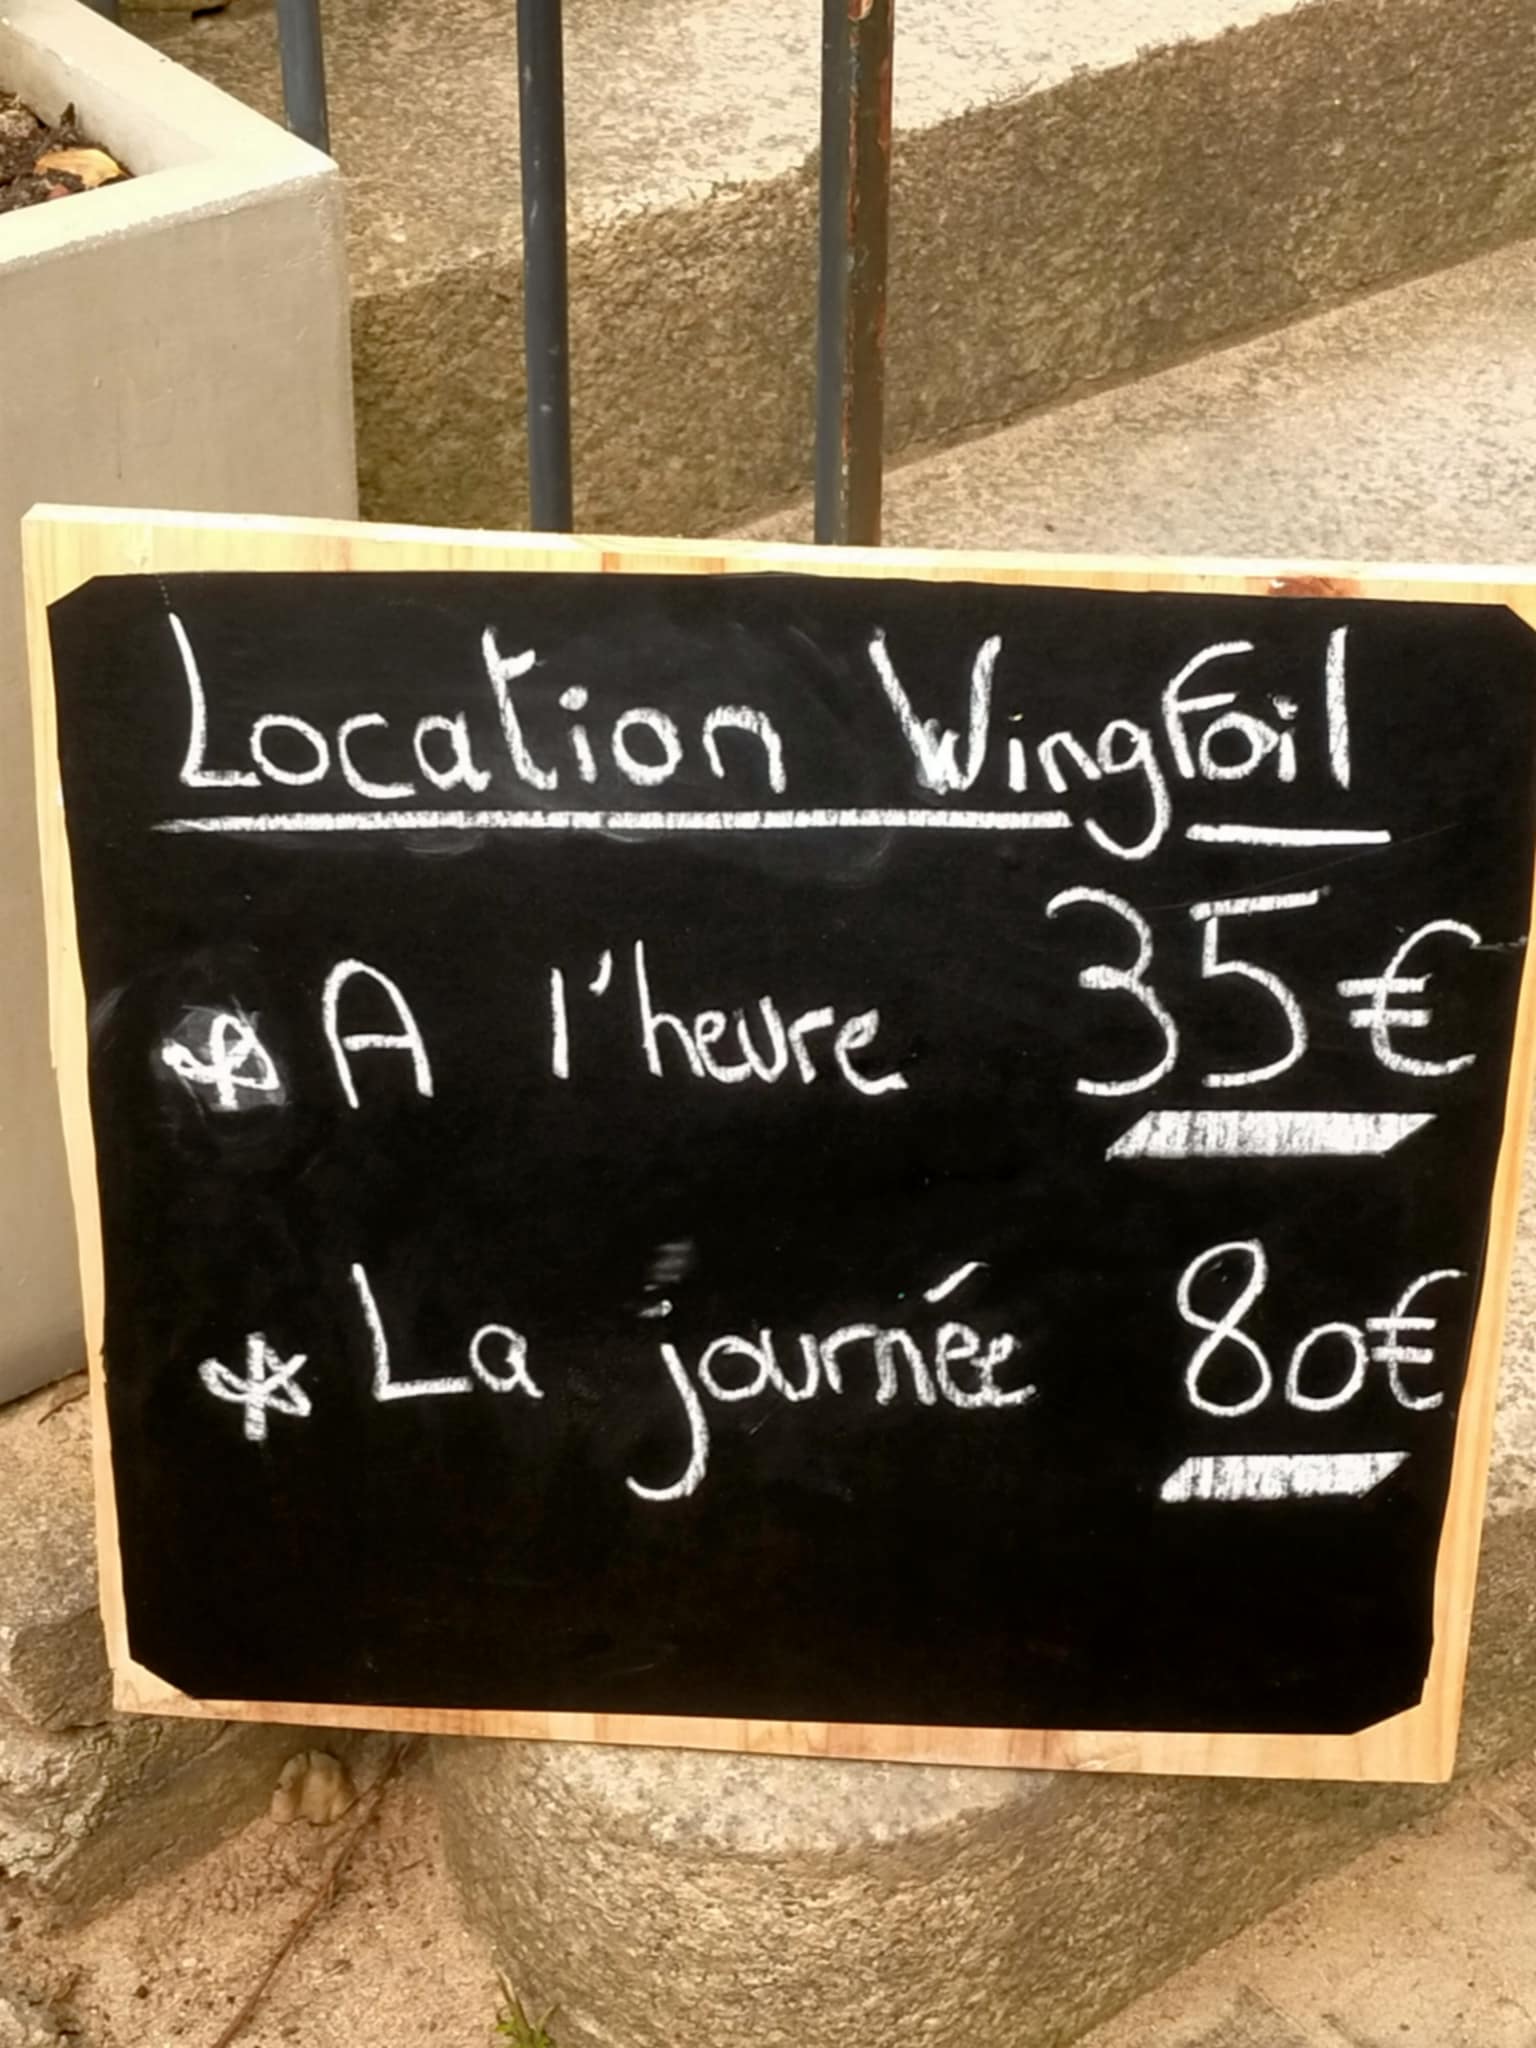 Location Wingfoil
* A l'heure 35€
* La journée 80€